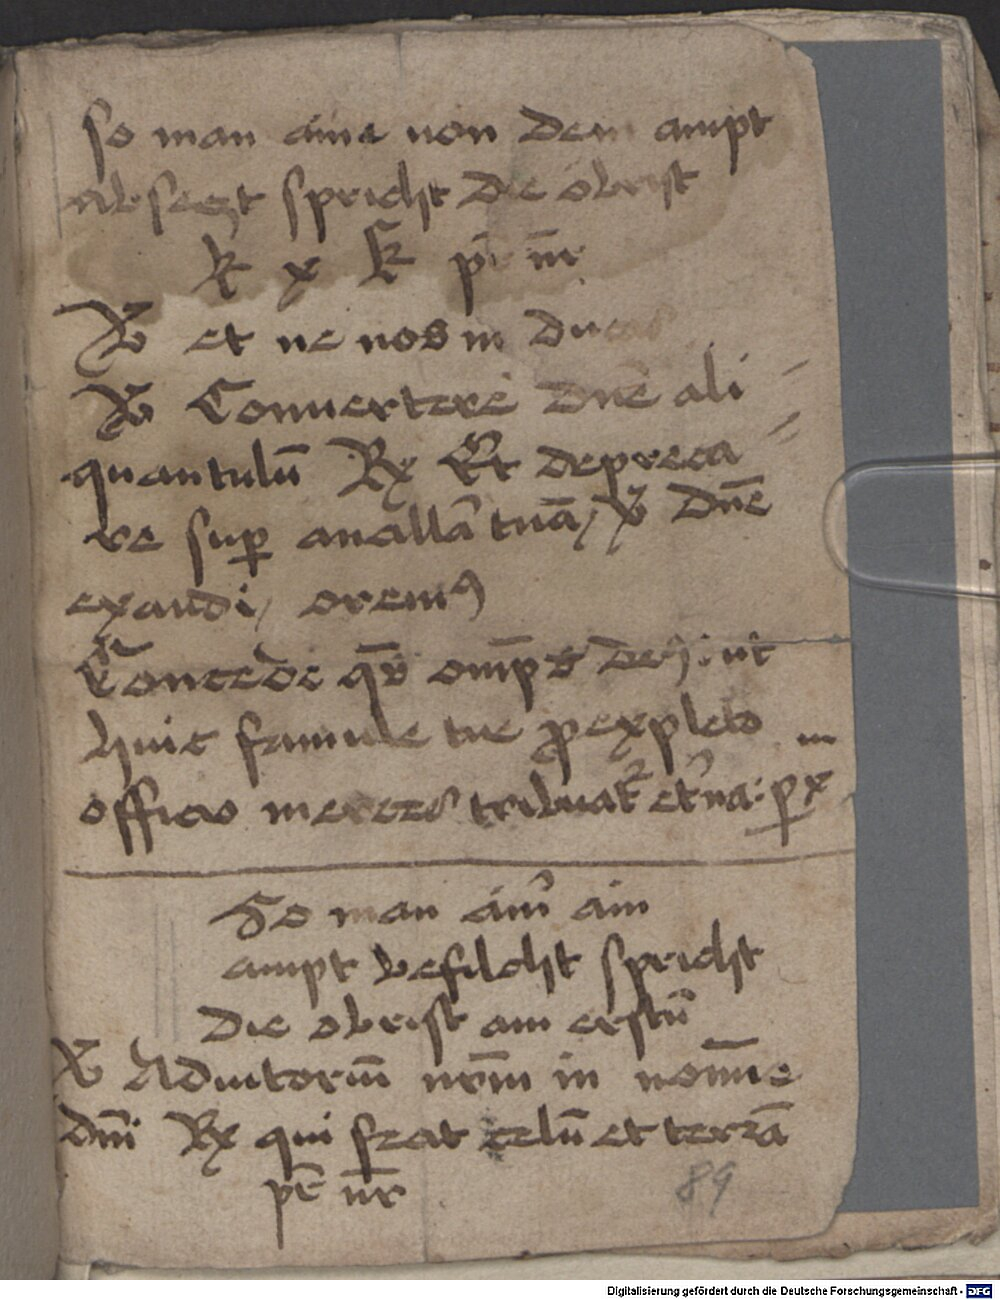 so man aine von dem ampt
absetzt spricht die obrist
k x k pr nr
V et ne nos in ducas
V Convertere dne ali
quantulū Rx Et depreca
re sup ancillā tuā / V dnē
exaudi / oremꝰ
Concede qs omps deꝰ : ut
huic famule tue p expleto in
officio merces tribuat etna : p x
So man ainr ain
ampt befilcht spricht
die obrist am erstn
V Adiutoriū nrm in nomīe
dni Rx qui fecit celū et terrā
pr nr
89
Digitalisierung gefördert durch die Deutsche Forschungsgemeinschaft - DFG